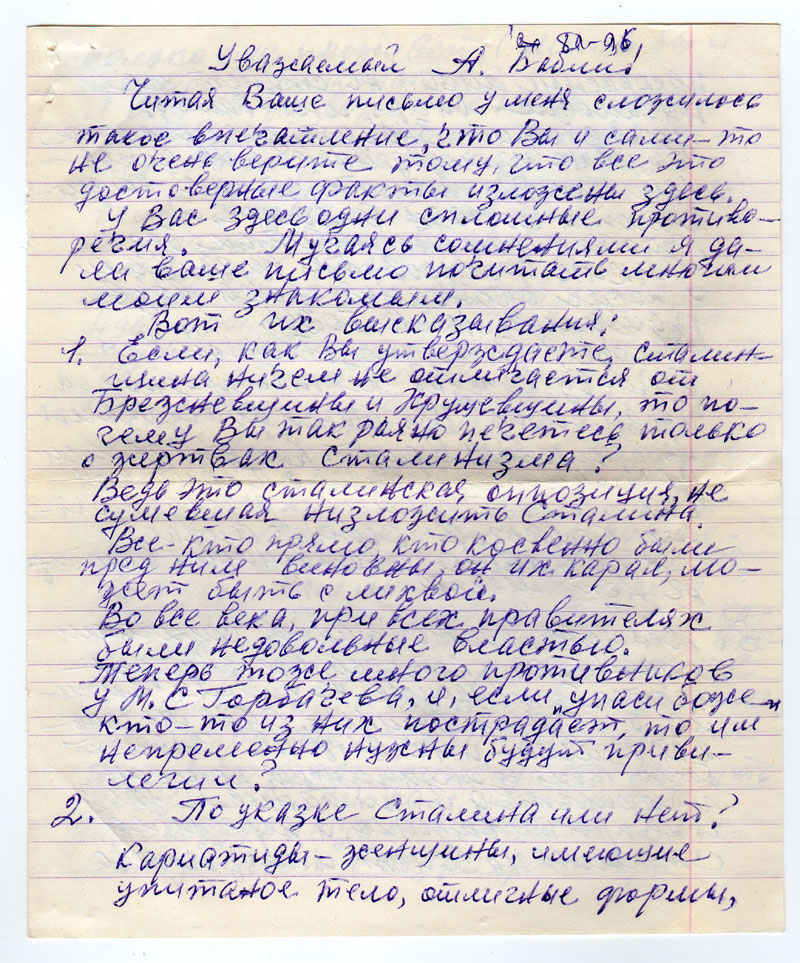 82-96
Уважаемый А. Бабий!
Читая Ваше письмо у меня сложилось
такое впечатление, что Вы и сами-то
не очень верите этому, что все это
достоверные факты изложены здесь.
У Вас здесь одни сплошные противо-
речия. Мучаясь сомнениями я да-
ла ваше письмо почитать многим
моим знакомым.
Вот их высказывания:
1. Если, как Вы утверждаете, сталин-
щина ничем не отличается от
Брежневщины и Хрущевщины, то по-
чему Вы так рьяно печетесь только
о жертвах Сталинизма?
Ведь это сталинская оппозиция, не
сумевшая низложить Сталина.
Все-кто прямо, кто косвенно были
пред ним виновны, он их карал, мо-
жет быть с лихвой.
Во все века, при всех правителях
были недовольные властью.
Теперь тоже много противников
у М.С Горбачева, и, если „упаси боже"
кто-то из них пострадает, то им
непременно нужны будут приви-
легии?
2. По указке Сталина или нет?
Кариатиды-женщины, имеющие
упитаное тело, отличные формы,